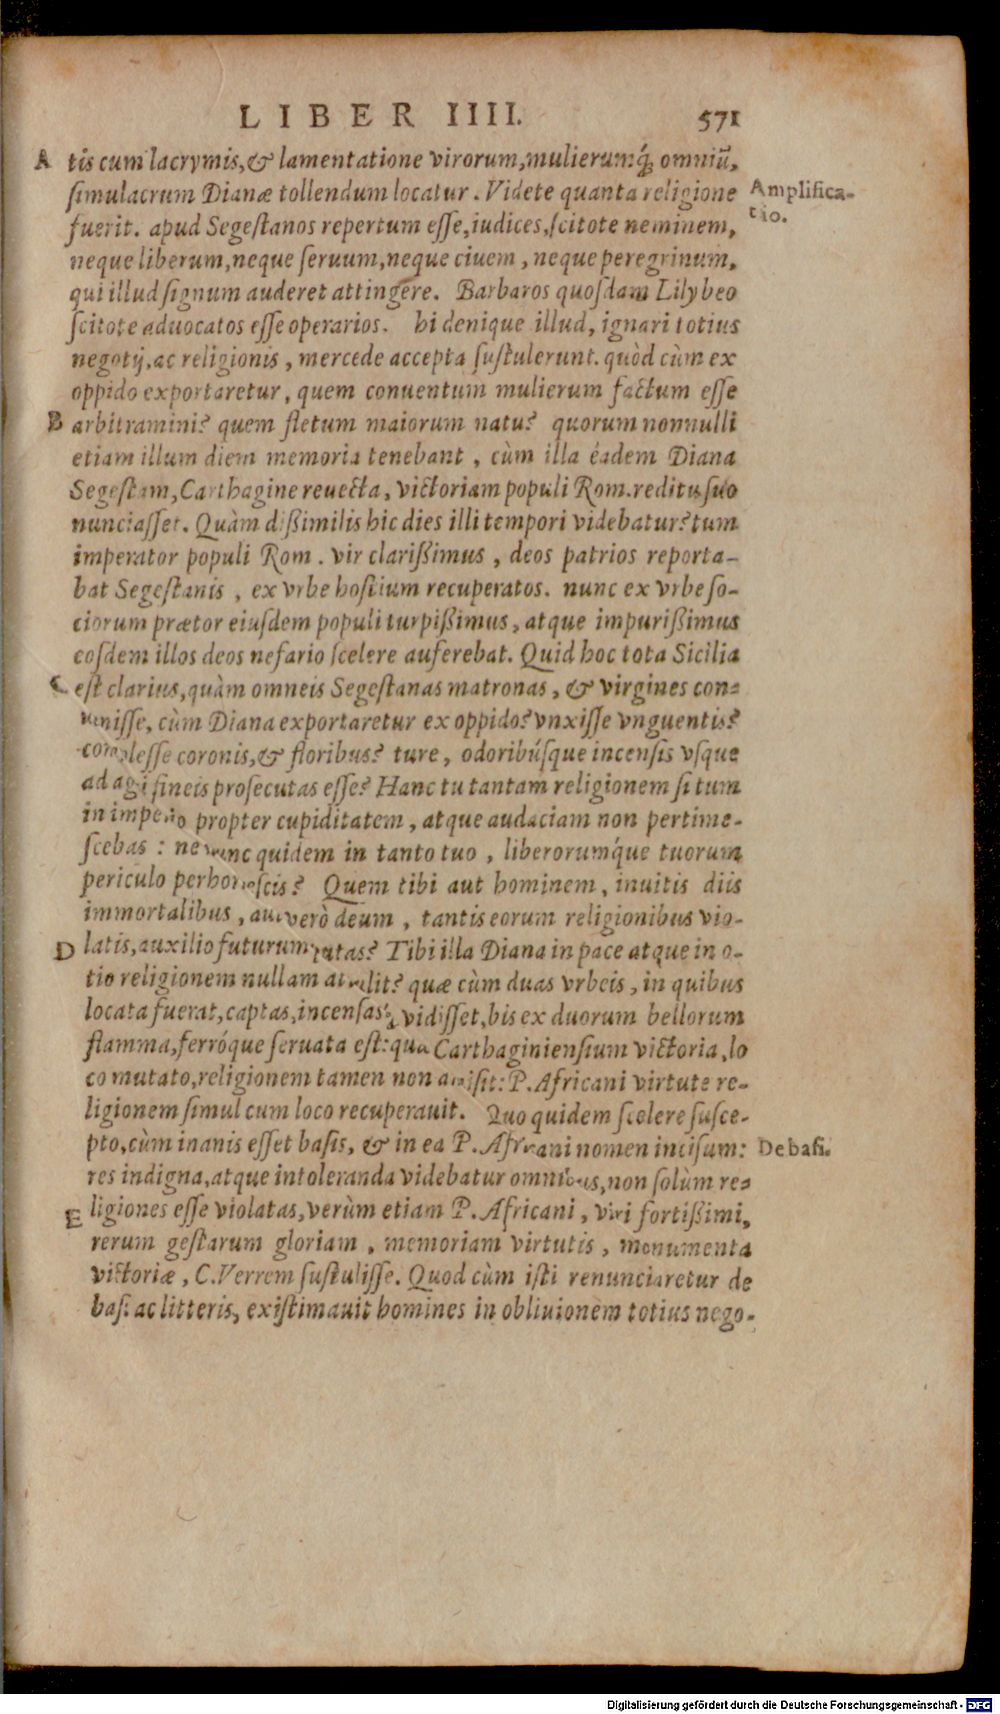 LIBER IIII. 571
A tis cum lacrymis, & lamentatione virorum, mulierumq́; omniū,
simulacrum Dianæ tollendum locatur. Videte quanta religione
Amplifica-
tio.
fuerit. apud Segestanos repertum esse, iudices, scitote neminem,
neque liberum, neque seruum, neque ciuem, neque peregrinum,
qui illud signum auderet attingere. Barbaros quosdam Lilybeo
scitote aduocatos esse operarios. hi denique illud, ignari totius
negotij, ac religionis, mercede accepta sustulerunt. quòd cùm ex
oppido exportaretur, quem conuentum mulierum factum esse
B arbitramini? quem fletum maiorum natu? quorum nonnulli
etiam illum diem memoria tenebant, cùm illa éadem Diana
Segestam, Carthagine reuecta, victoriam populi Rom. reditu suo
nunciasset. Quàm dißimilis hic dies illi tempori videbatur? tum
imperator populi Rom. vir clarißimus, deos patrios reporta-
bat Segestanis, ex vrbe hostium recuperatos. nunc ex vrbe so-
ciorum prætor eiusdem populi turpißimus, atque impurißimus
eosdem illos deos nefario scelere auferebat. Quid hoc tota Sicilia
C est clarius, quàm omneis Segestanas matronas, & virgines con-
uenisse, cùm Diana exportaretur ex oppido? vnxisse vnguentis?
complesse coronis, & floribus? ture, odoribúsque incensis vsque
ad agri fineis prosecutas esse? Hanc tu tantam religionem si tum
in imperio propter cupiditatem, atque audaciam non pertime-
scebas: ne nunc quidem in tanto tuo, liberorumq́ue tuorum
periculo perhorrescis? Quem tibi aut hominem, inuitis diis
immortalibus, aut verò deum, tantis eorum religionibus vio-
D latis, auxilio futurum putas? Tibi illa Diana in pace atque in o-
tio religionem nullam attulit? quæ cùm duas vrbeis, in quibus
locata fuerat, captas, incensasq́; vidisset, bis ex duorum bellorum
flamma, ferróque seruata est: quæ Carthaginiensium victoria, lo
co mutato, religionem tamen non amisit: P. Africani virtute re-
ligionem simul cum loco recuperauit. Quo quidem scelere susce-
pto, cùm inanis esset basis, & in ea P. Africani nomen incisum:
De basi.
res indigna, atque intoleranda videbatur omnibus, non solùm re-
E ligiones esse violatas, verùm etiam P. Africani, viri fortißimi,
rerum gestarum gloriam, memoriam virtutis, monumenta
victoriæ, C. Verrem sustulisse. Quod cùm isti renunciaretur de
basi ac litteris, existimauit homines in obliuionem totius nego-
Digitalisierung gefördert durch die Deutsche Forschungsgemeinschaft - DFG